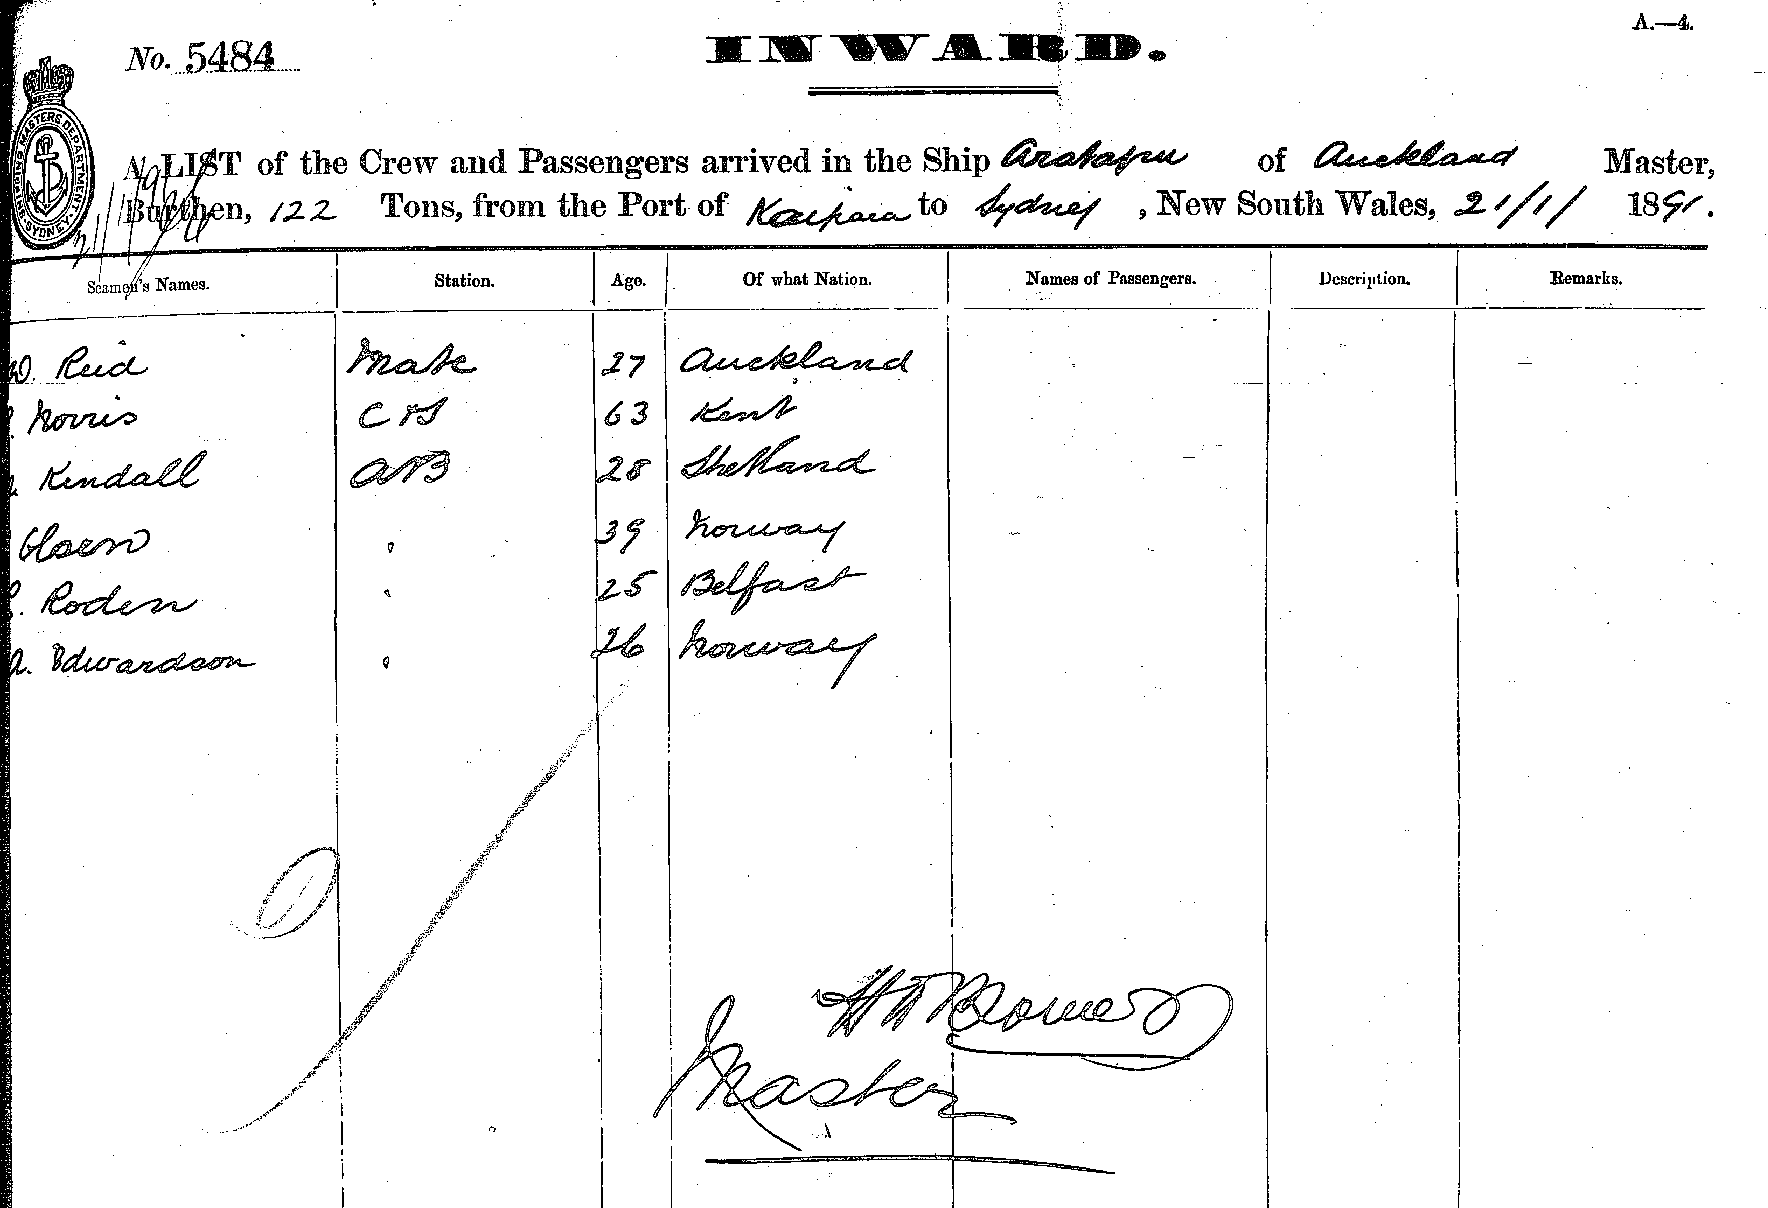 A.—4.
No. 5484
INWARD.
SHIPPING MASTERS DEPARTMENT SYDNEY
A LIST of the Crew and Passengers arrived in the Ship Aratapu of Auckland Master,
Burthen, 122 Tons, from the Port of Kaipara to Sydney, New South Wales, 21/1/ 1891.
Seamen's Names. Station. Age. Of what Nation. Names of Passengers. Description. Remarks.
W. Reid Mate 27 Auckland
Norris C & S 63 Kent
Kendall AB 28 Shetland
Olsen " 39 Norway
Roden " 25 Belfast
A. Edwardson " 26 Norway
Master